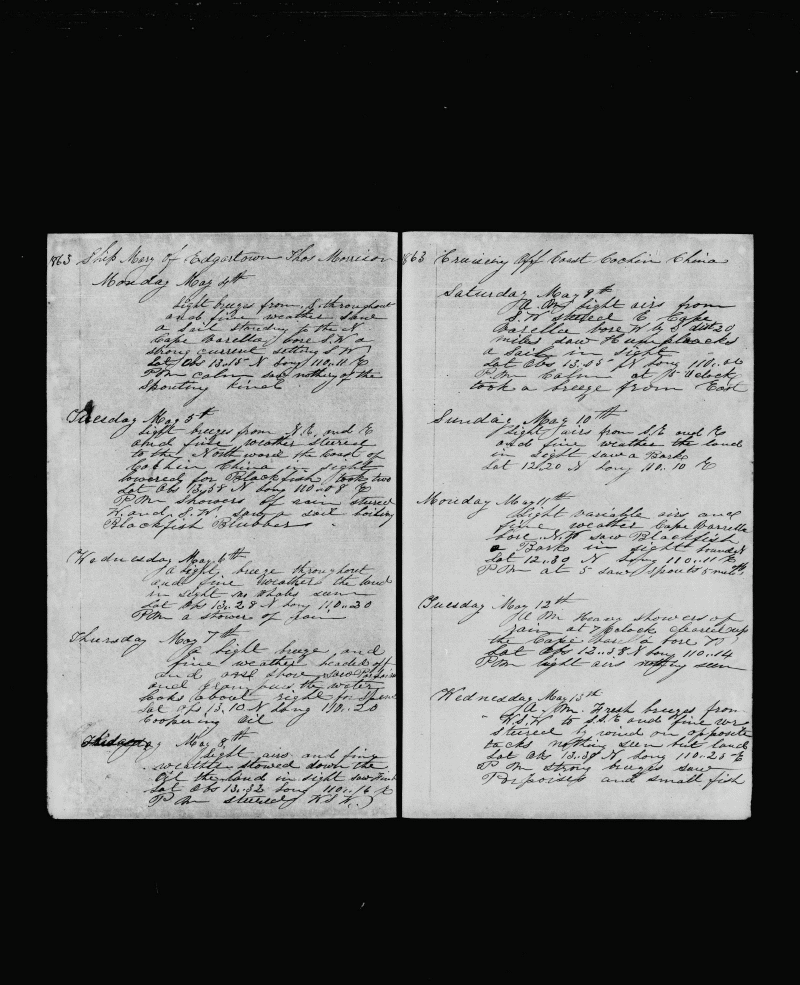 1863 Ship Mary of Edgartown Thos Morrison
Monday May 4th
Light breezes from S. throughout
and fine weather saw
a sail standing to the N.
Cape Varella bore S.W a
strong current setting S W
Lat Obs 13..15 N Long 110..11 E
P M calm saw nothing of the
Spouting kind
Tuesday May 5th
Light breezes from N.E. and E
and fine weather steered
to the Northward the Coast of
Cochin China in sight
lowered for Blackfish took two
Lat Obs 13..38 N Long 110..08 E
P M showers of rain steered
W. and S.W. saw a sail boiling
Blackfish Blubber
Wednesday May 6th
A light breeze throughout
and fine weather the land
in sight no whales seen
Lat Obs 13..28 N Long 110..30
P M a shower of rain
Thursday May 7th
A light breeze and
fine weather headed off
and on shore saw Porpoises
and the water
looks about right for Sperm
Lat Obs 13.10 N Long 110..20
Coopering Oil
May 8th
Light airs and fine
weather stowed down the
Oil the land in sight saw
Lat Obs 13..32 Long 110..16 E
P M steered W S W.
1863 Cruising Off Coast Cochin China
Saturday May 9th
A.M. light airs from
S.W steered E Cape
Varella bore W by S dist 20
miles saw Humpbacks
a Sail in sight
Lat Obs 13..05 N Long 110..
P M Calm at o'clock
took a breeze from East
Sunday May 10th
Light airs from S.E and E
and fine weather the land
in sight saw a Bark
Lat 12.20 N Long 110.10 E
Monday May 11th
Light variable airs and
fine weather Cape Varrella
bore N.W saw Blackfish
a Bark in sight bound N
Lat 12..30 N Long 110..11 E
P M at 5 saw spouts 5 miles
Tuesday May 12th
A M Heavy showers of
rain at 7 Oclock cleared up
the Cape bore
Lat Obs 12..38 N Long 110..14
P M light airs nothing seen
Wednesday May 13th
A.M. Fresh breezes from
W.S.W to S.S.E and fine wr
steered by wind on opposite
tacks nothing seen but land
Lat Ob 13..38 N Long 110..25 E
P M strong breezes saw
Porpoises and small fish